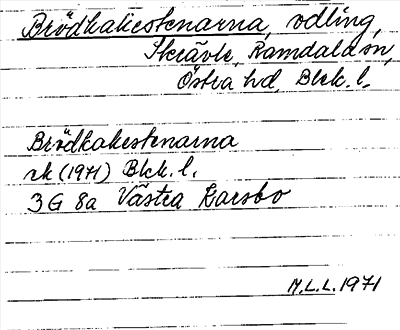 Brödkakestenarna, odling,
Skrävle, Ramdala sn,
Östra hd, Blek. l.
Brödkakestenarna
rk (1971) Blek. l.
3 G 8a Västra Karsbo
M.L.L. 1971